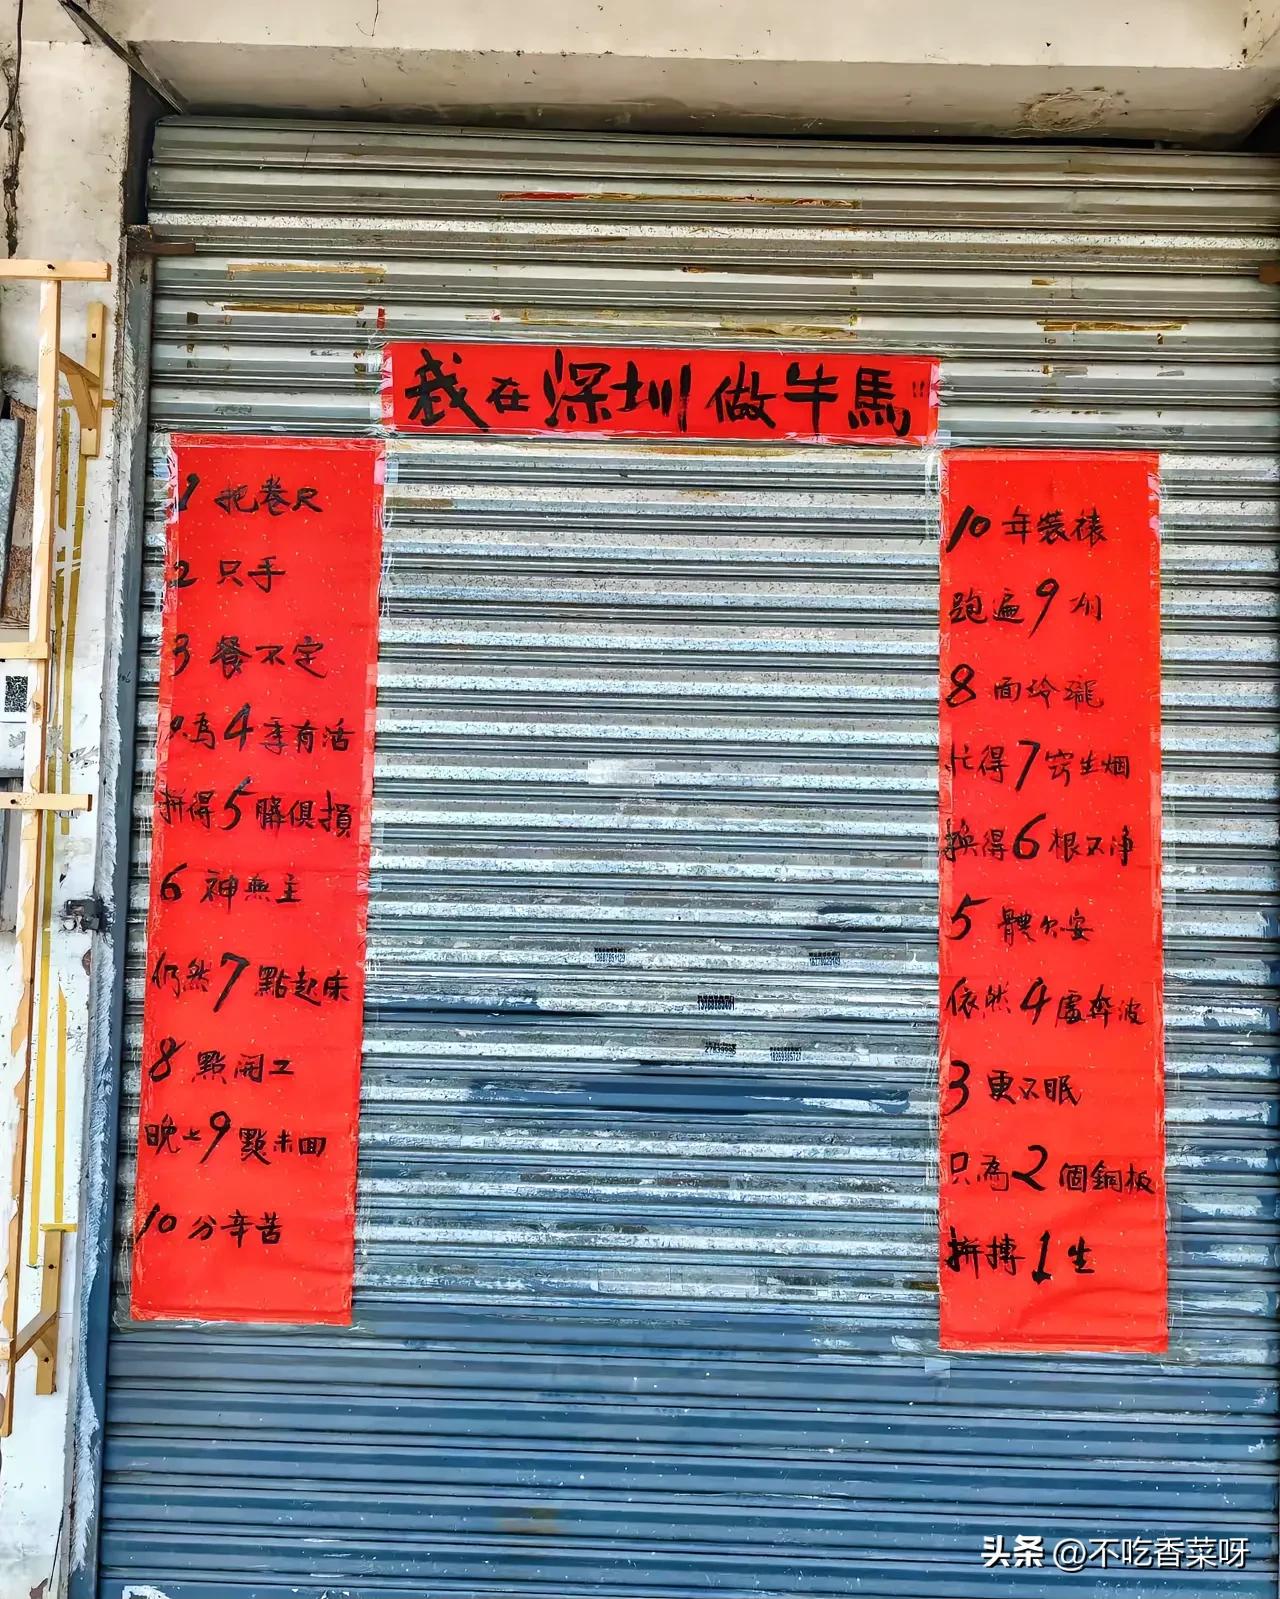 我在深圳做牛馬"
1 把卷尺
2 只手
3 餐不定
只為4季有活
拼得5臟俱損
6 神無主
仍然7點起床
8 點開工
晚上9點未回
10 分辛苦
10 年裝裱
跑遍9州
8 面玲瓏
忙得7窍生烟
換得6根不净
5 體欠安
依然4處奔波
3 更不眠
只為2個銅板
拼搏1生
头条 @不吃香菜呀